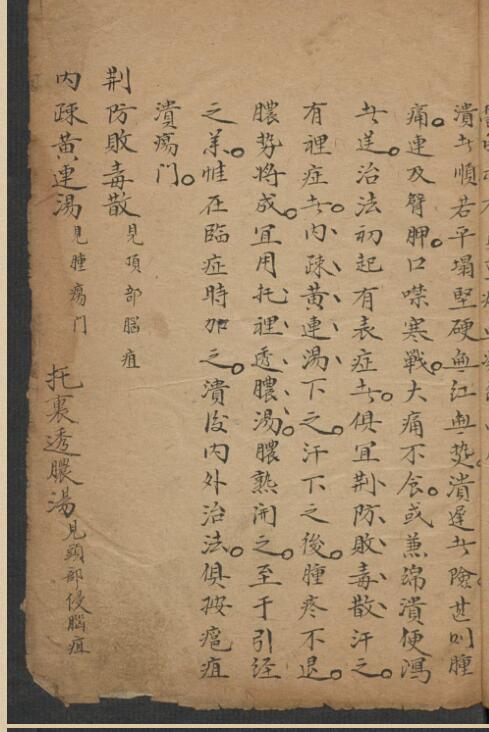 潰者順若平塌堅硬無紅無熱潰遲者險。甚則腫
痛。連及臂胛。口噤寒戰。大痛不食。或兼綿潰便瀉
者逆。治法初起有表症者。俱宜荆防敗毒散汗之。
有裡症者。內疎黃連湯下之。汗下之後。腫疼不退。
膿勢將成。宜用托裡透膿湯。膿熟開之。至于引經
之藥。惟在臨症時加之。潰後內外治法。俱按癰疽
潰瘍門。
荆防敗毒散 見項部腦疽
內疎黃連湯 見腫瘍門 托裏透膿湯 見頭部侵腦疽